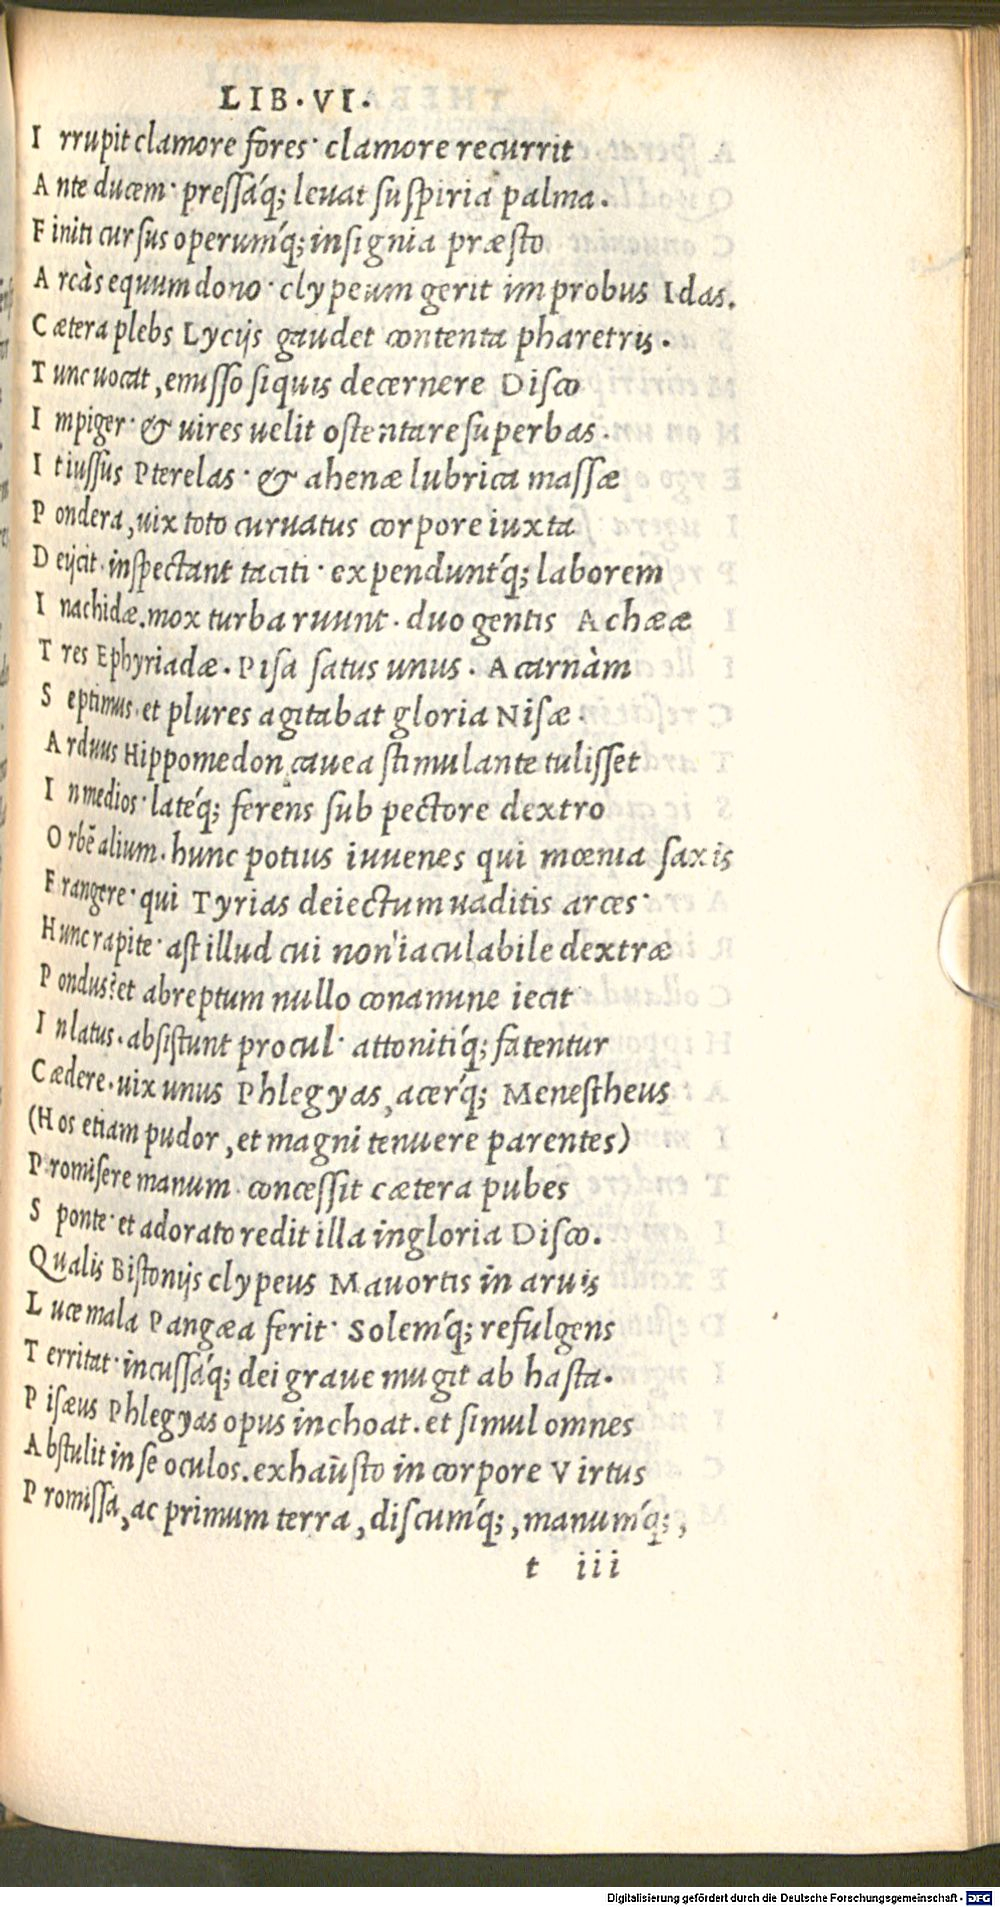 LIB. VI.
I rrupit clamore fores· clamore recurrit
A nte ducem· pressáq; leuat suspiria palma.
F initi cursus operumq́; insignia præsto
A rcàs equum dono· clypeum gerit improbus Idas.
C ætera plebs Lycijs gaudet contenta pharetris.
T unc uocat, emisso siquis decernere Disco
I mpiger· & uires uelit ostentare superbas.
I t iussus Pterelas· & ahenæ lubrica massæ
P ondera, uix toto curuatus corpore iuxta
D eijcit. inspectant taciti· expenduntq́; laborem
I nachidæ. mox turba ruunt. duo gentis Achææ
T res Ephyriadæ. Pisa satus unus. Acarnàm
S eptimus. et plures agitabat gloria Nisæ.
A rduus Hippomedon cauea stimulante tulisset
I n medios· latéq; ferens sub pectore dextro
O rbē alium. hunc potius iuuenes qui mœnia saxis
F rangere· qui Tyrias deiectum uaditis arces·
H unc rapite· ast illud cui non iaculabile dextræ
P ondus? et abreptum nullo conamine iecit
I n latus. absistunt procul· attonitiq́; fatentur
C ædere. uix unus Phlegyas, acerq́; Menestheus
(H os etiam pudor, et magni tenuere parentes)
P romisere manum. concessit cætera pubes
S ponte· et adorato redit illa ingloria Disco.
Q ualis Bistonijs clypeus Mauortis in aruis
L uce mala Pangæa ferit· Solemq́; refulgens
T erritat· incussáq; dei graue mugit ab hasta.
P isæus Phlegyas opus inchoat. et simul omnes
A bstulit in se oculos. exhaūsto in corpore Virtus
P romissa, ac primum terra, discumq́;, manumq́;,
t iii
Digitalisierung gefördert durch die Deutsche Forschungsgemeinschaft - DFG